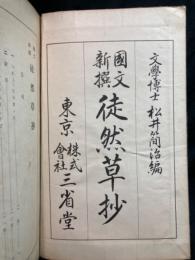 文學博士 松井簡治編
國文新撰
徒然草抄
東京 株式會社 三省堂